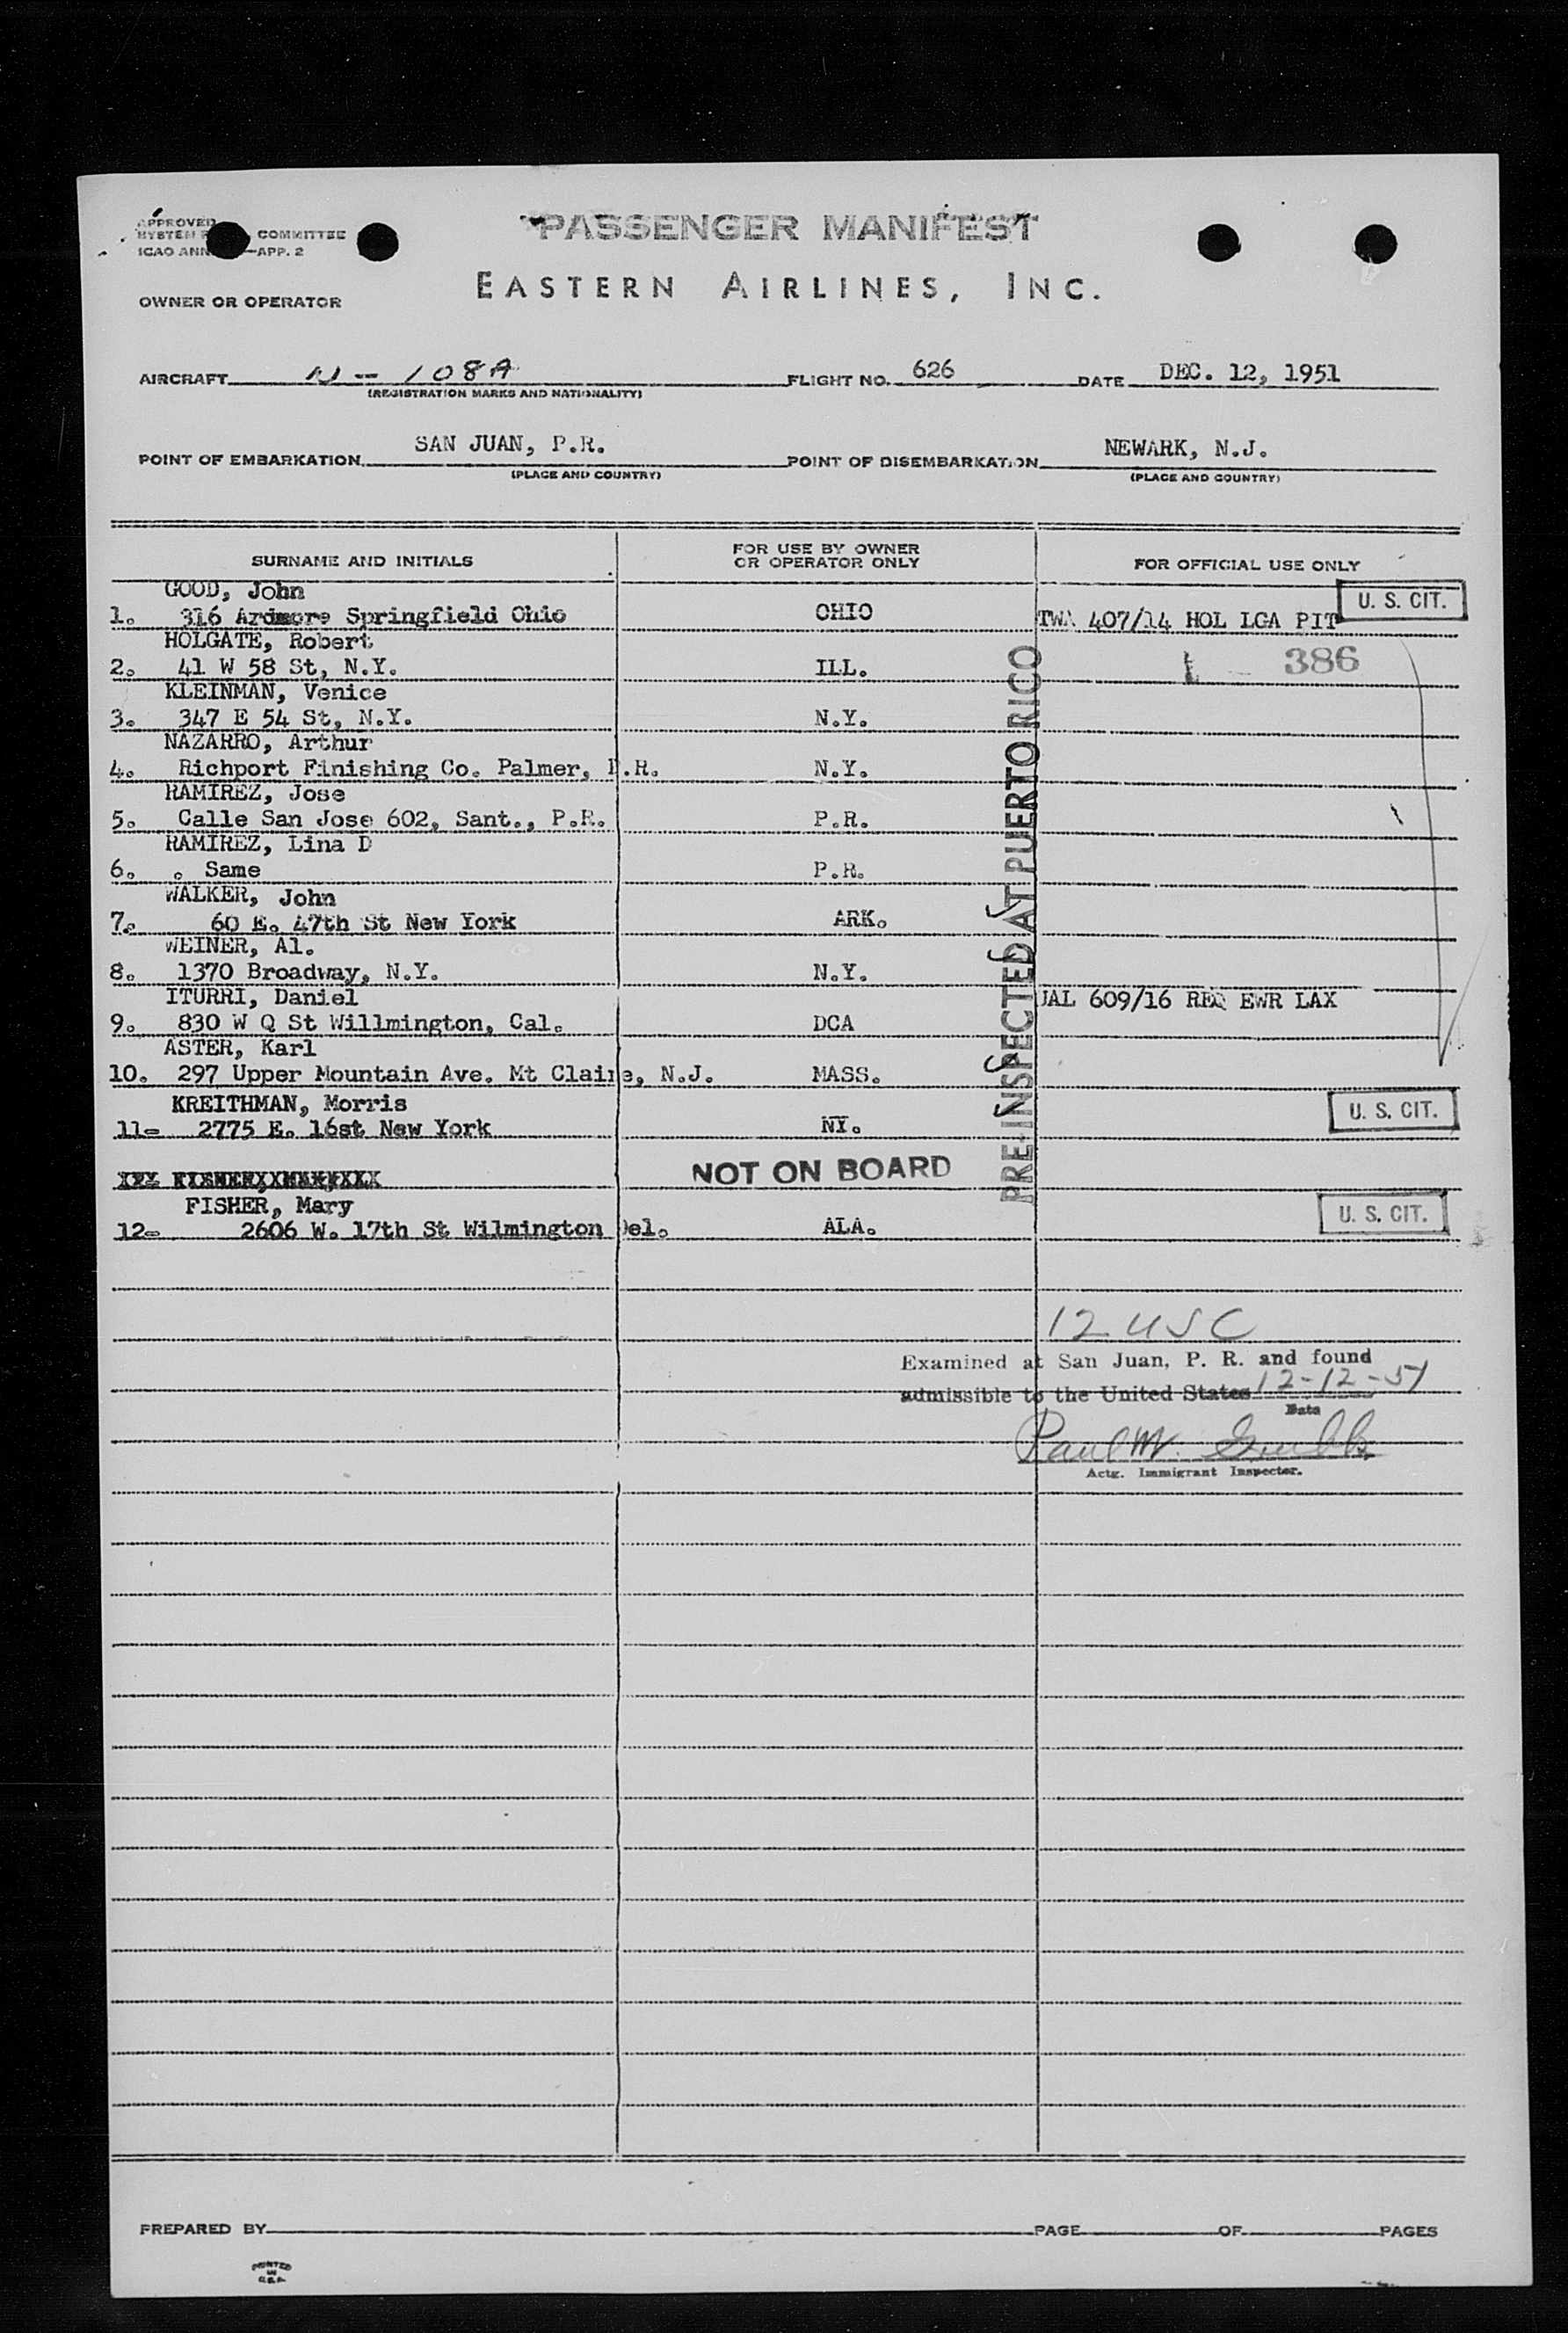 APPROVED
SYSTEM COMMITTEE
ICAO ANN —APP. 2
PASSENGER MANIFEST
EASTERN AIRLINES, INC.
OWNER OR OPERATOR
AIRCRAFT N - 108A FLIGHT NO. 626 DATE DEC. 12, 1951
(REGISTRATION MARKS AND NATIONALITY)
POINT OF EMBARKATION SAN JUAN, P.R. POINT OF DISEMBARKATION NEWARK, N.J.
(PLACE AND COUNTRY) (PLACE AND COUNTRY)
SURNAME AND INITIALS FOR USE BY OWNER OR OPERATOR ONLY FOR OFFICIAL USE ONLY
GOOD, John
1. 316 Ardmore Springfield Ohio OHIO TWA 407/14 HOL LGA PIT U. S. CIT.
HOLGATE, Robert
2. 41 W 58 St, N.Y. ILL. 386
KLEINMAN, Venice
3. 347 E 54 St, N.Y. N.Y.
NAZARRO, Arthur
4. Richport Finishing Co. Palmer, P.R. N.Y.
RAMIREZ, Jose
5. Calle San Jose 602, Sant., P.R. P.R.
RAMIREZ, Lina D
6. . Same P.R.
WALKER, John
7. 60 E. 47th St New York ARK.
WEINER, Al.
8. 1370 Broadway, N.Y. N.Y.
ITURRI, Daniel
9. 830 W Q St Willmington, Cal. DCA UAL 609/16 REQ EWR LAX
ASTER, Karl
10. 297 Upper Mountain Ave. Mt Claire, N.J. MASS.
KREITHMAN, Morris
11- 2775 E. 16st New York NY. U. S. CIT.
PRE-INSPECTED AT PUERTO RICO
NOT ON BOARD
FISHER, Mary
12- 2606 W. 17th St Wilmington Del. ALA. U. S. CIT.
12 USC
Examined at San Juan, P. R. and found
admissible to the United States 12-12-51
Date
Paul M.
Actg. Immigrant Inspector.
PREPARED BY PAGE OF PAGES
PRINTED
IN
U.S.A.